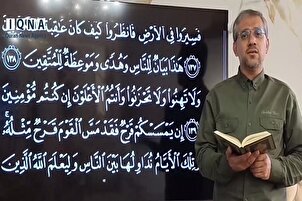 IQNA
فَسِيرُوا فِي الْأَرْضِ فَانْظُرُوا كَيْفَ كَانَ عَاقِبَةُ
﴿١٣٧﴾ هَٰذَا بَيَانٌ لِلنَّاسِ وَهُدًى وَمَوْعِظَةٌ لِلْمُتَّقِينَ ﴿١٣٨﴾
وَلَا تَهِنُوا وَلَا تَحْزَنُوا وَأَنْتُمُ الْأَعْلَوْنَ إِنْ كُنْتُمْ مُؤْمِنِينَ
﴿١٣٩﴾ إِنْ يَمْسَسْكُمْ قَرْحٌ فَقَدْ مَسَّ الْقَوْمَ قَرْحٌ مِثْلُهُ
وَتِلْكَ الْأَيَّامُ نُدَاوِلُهَا بَيْنَ النَّاسِ وَلِيَعْلَمَ اللَّهُ الَّذِينَ